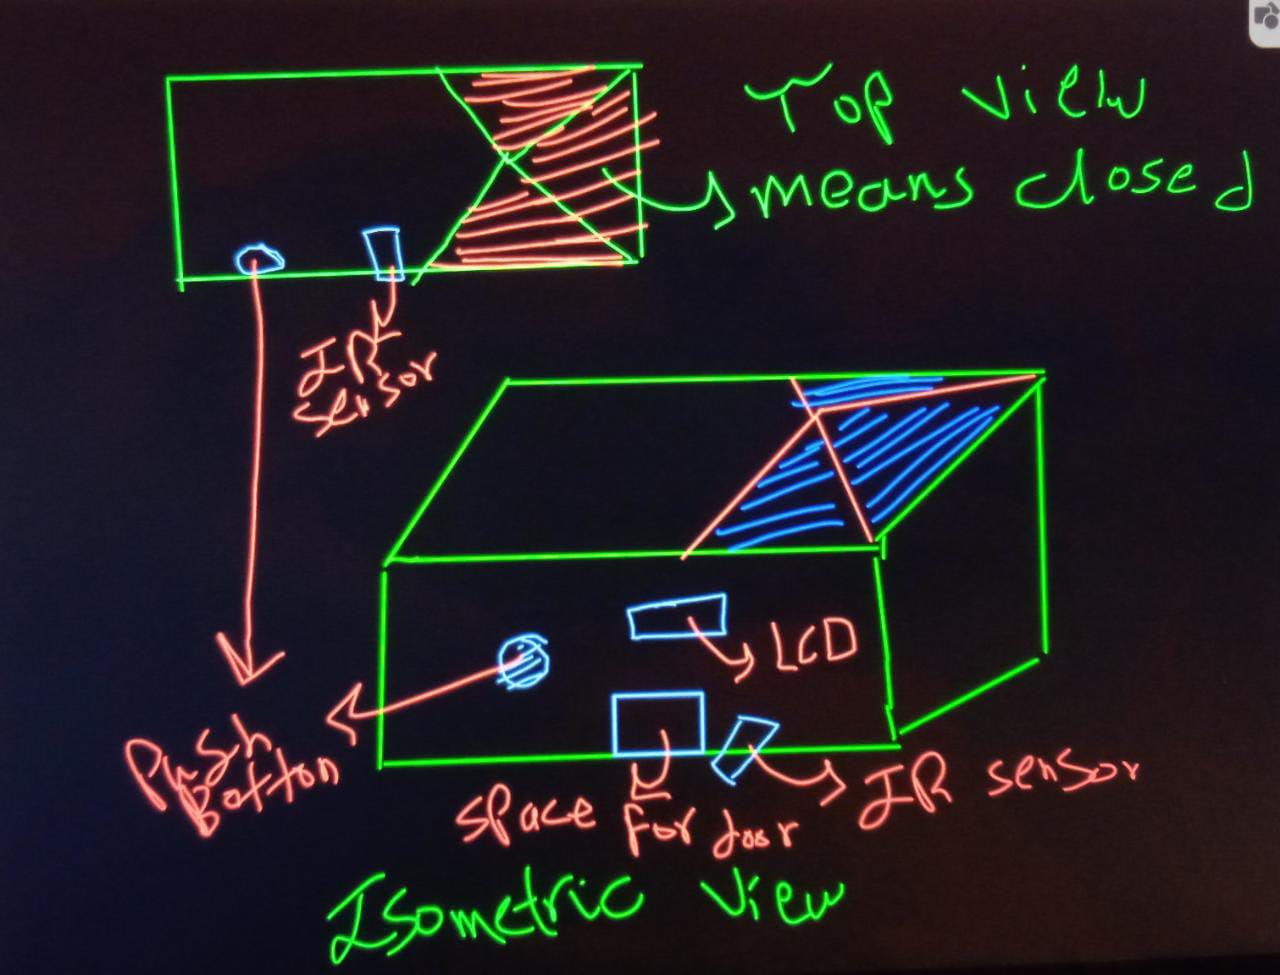 Top view
means closed
IR
sensor
LCD
Push
Botton
space for door
IR sensor
Isometric view